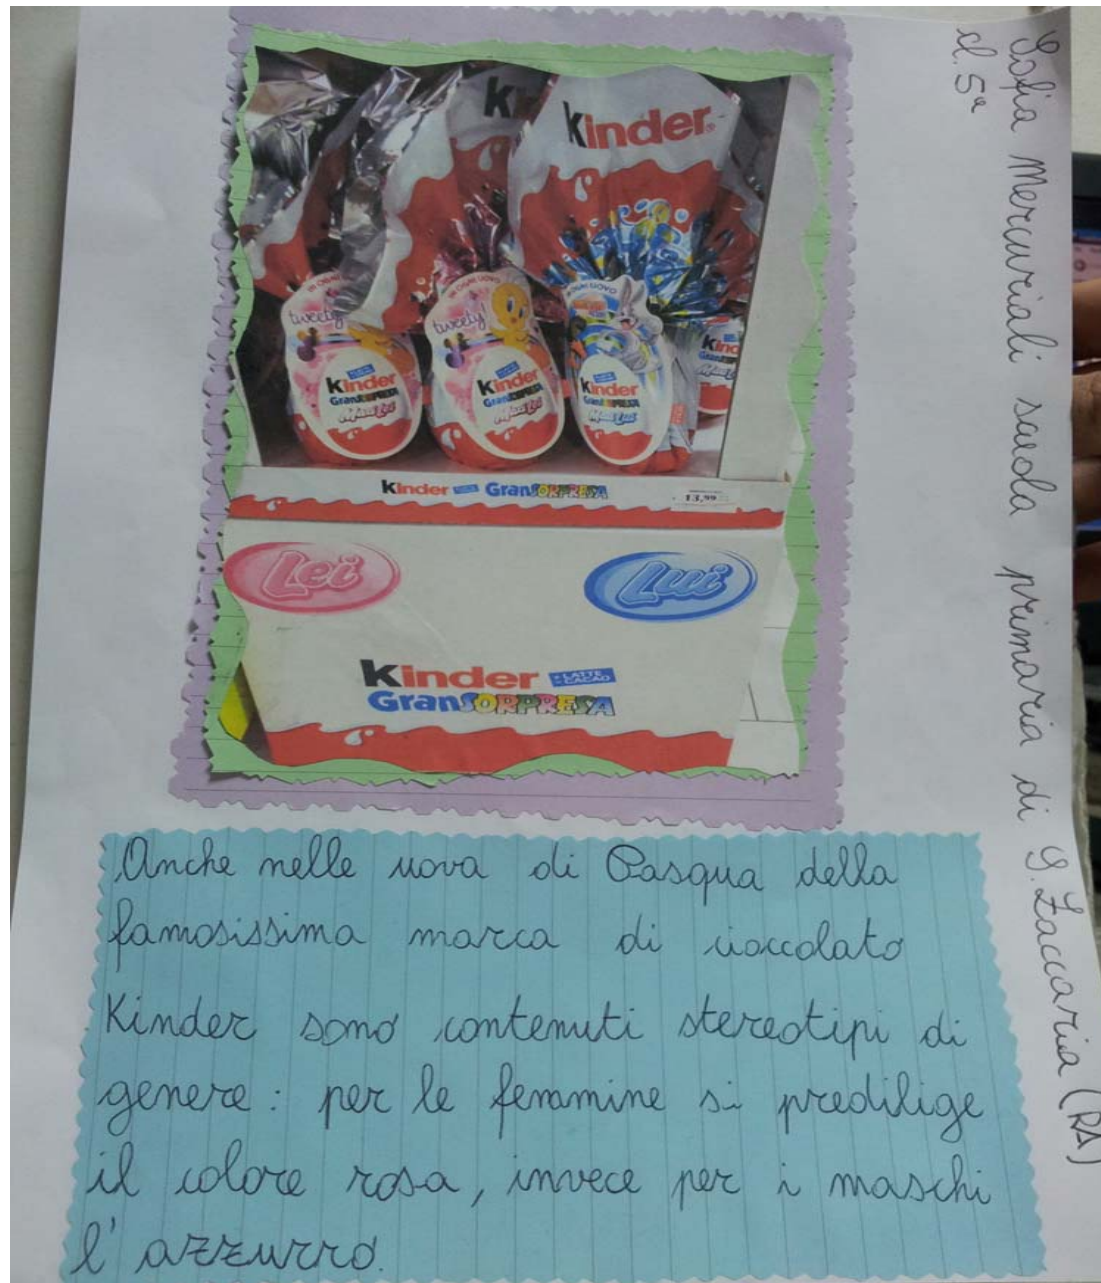 Sofia Mercuriali scuola primaria di S. Zaccaria (RA)
cl. 5ª
k
kinder
IN OGNI UOVO
tweety
kinder
GranSORPRESA
Maxi Lei
IN OGNI UOVO
tweety
kinder
GranSORPRESA
Maxi Lei
OGNI UOVO
kinder
GranSORPRESA
Maxi Lui
kinder GranSORPRESA
13,99
Lei
Lui
Kinder +LATTE
-CACAO
GranSORPRESA
Anche nelle uova di Pasqua della
famosissima marca di cioccolato
Kinder sono contenuti stereotipi di
genere: per le femmine si predilige
il colore rosa, invece per i maschi
l'azzurro.